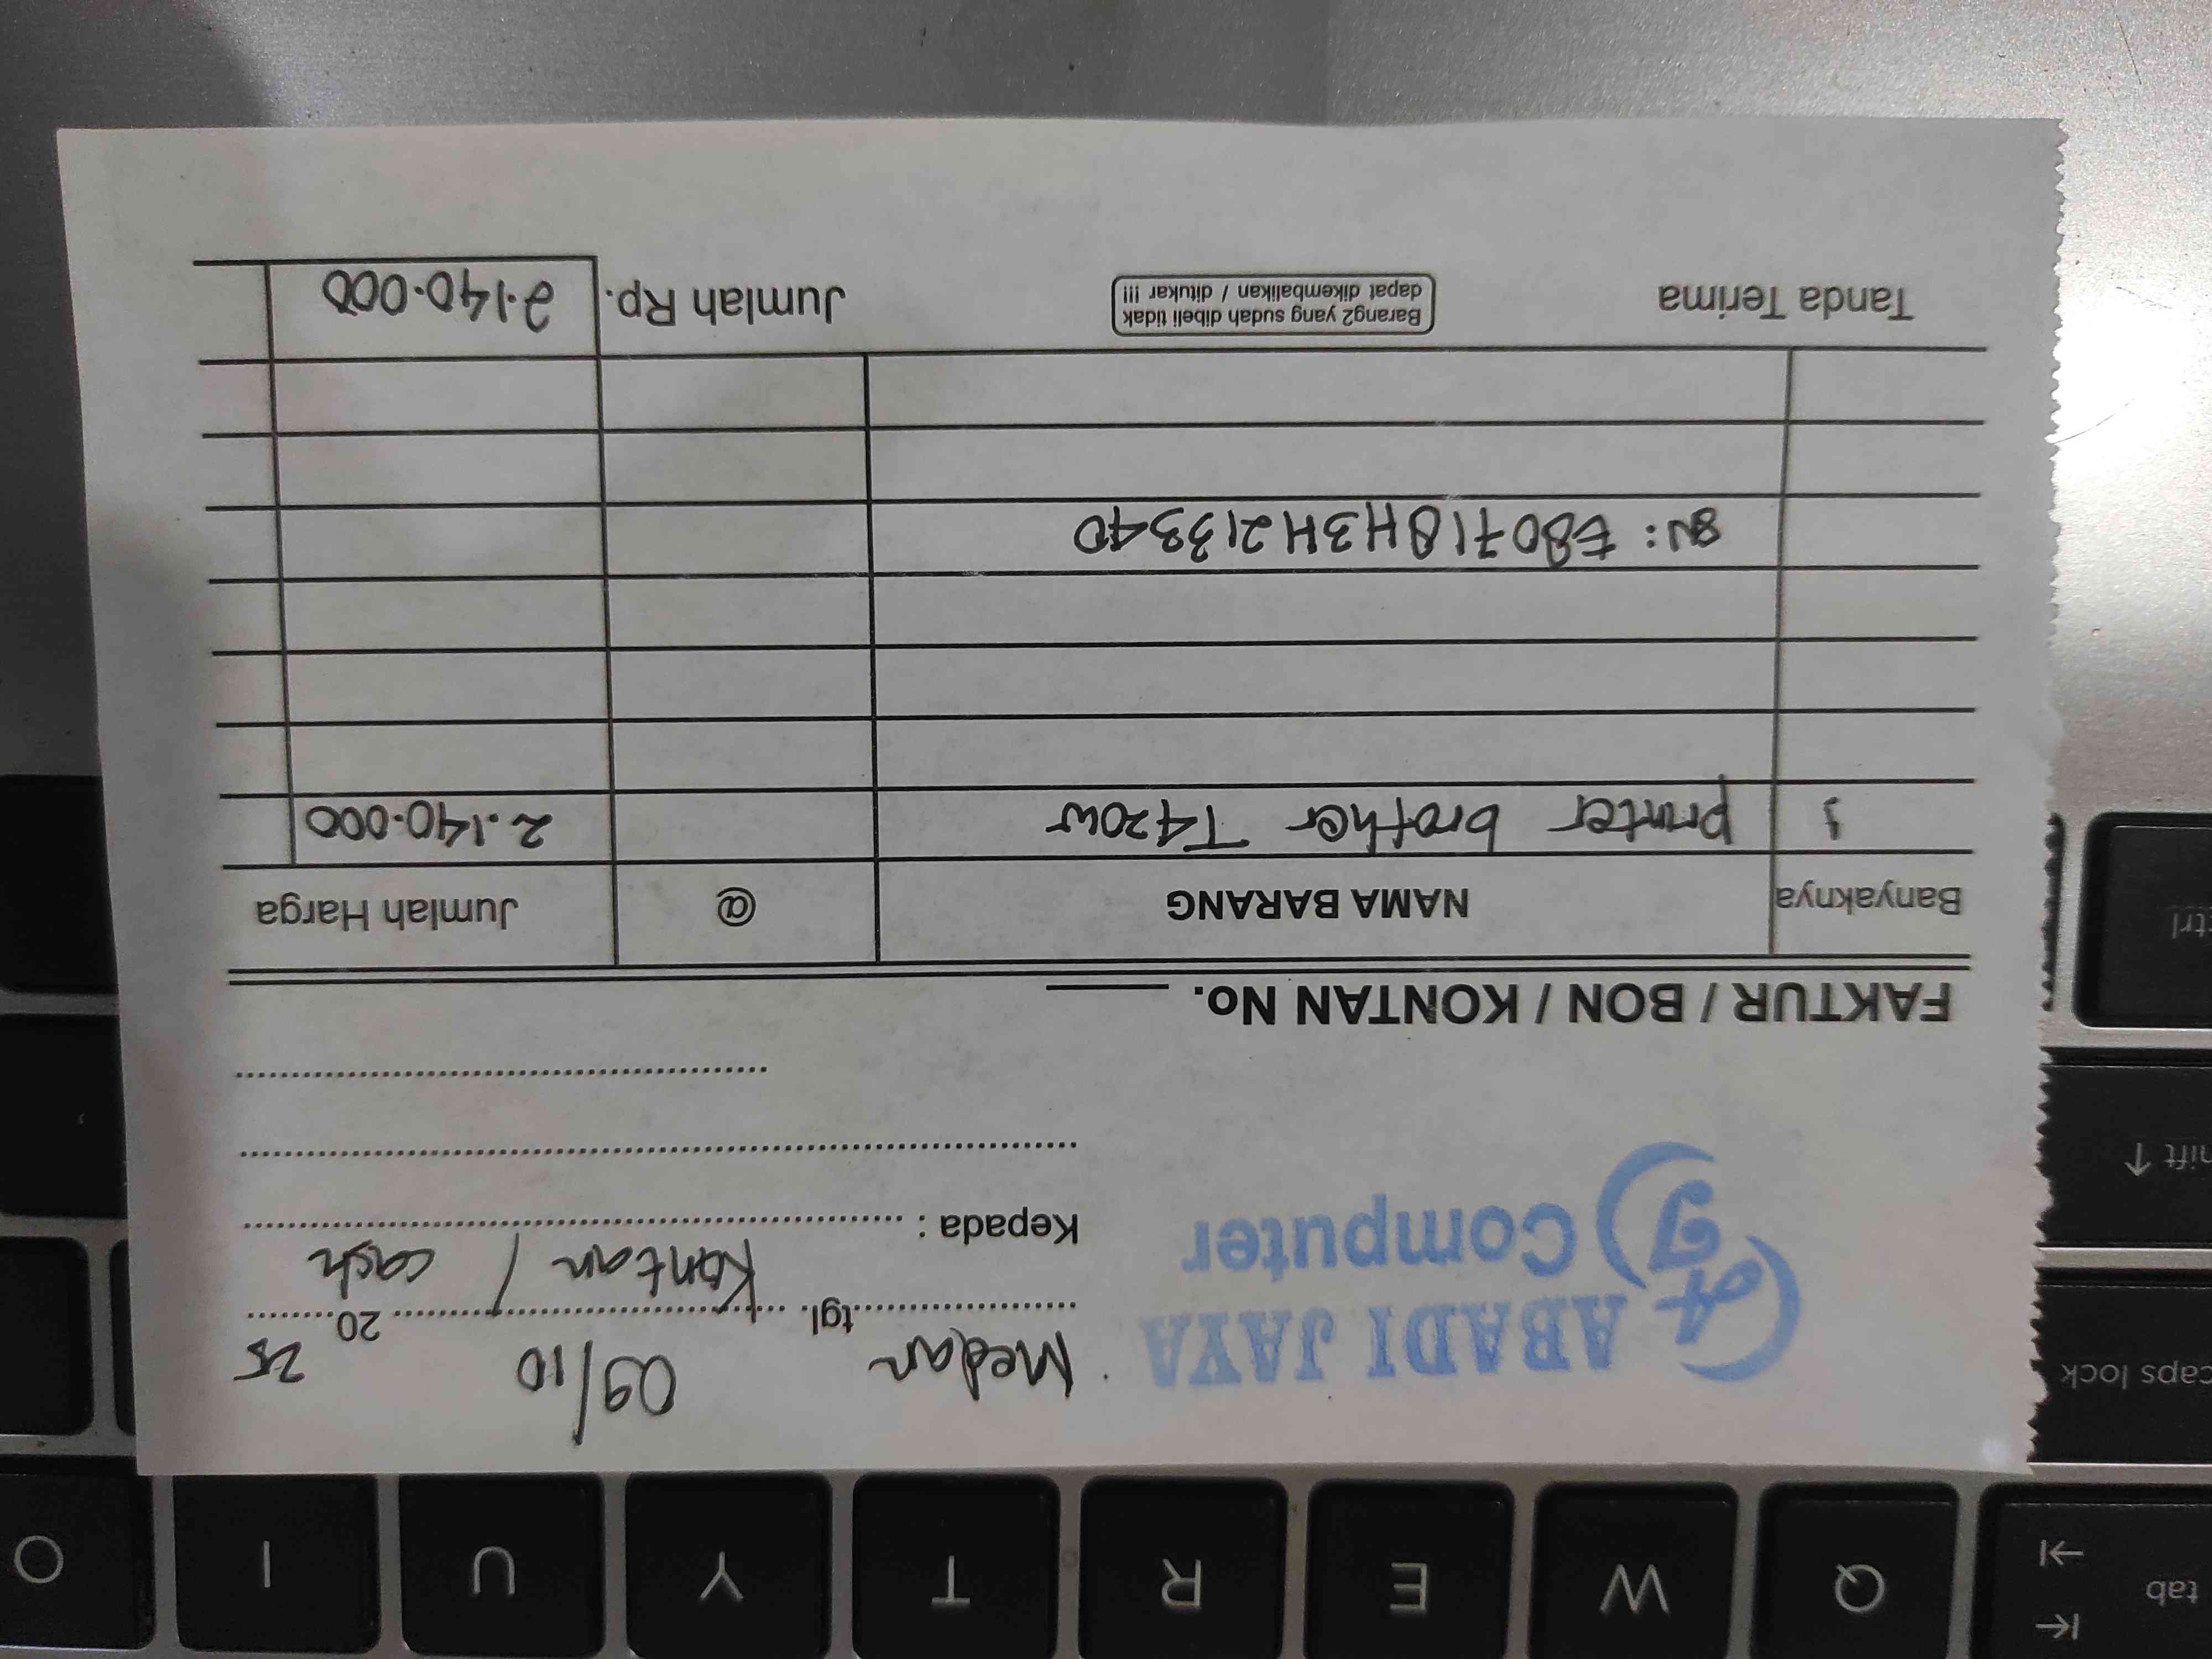 ABADI JAYA
AJ Computer
Medan tgl. 09/10 20 25
Kontan / cash
Kepada :
FAKTUR / BON / KONTAN No.
Banyaknya NAMA BARANG @ Jumlah Harga
1 printer brother T420w 2.140.000
SN: E80718H3H213340
Tanda Terima
Barang2 yang sudah dibeli tidak
dapat dikembalikan / ditukar !!!
Jumlah Rp. 2.140.000
tab Q W E R T Y U I O
caps lock
shift
ctrl